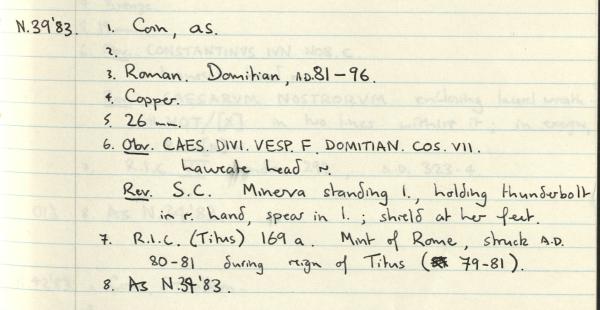 N.39'83. 1. Coin, as.
2.
3. Roman. Domitian, A.D. 81-96.
4. Copper.
5. 26 mm.
6. Obv. CAES. DIVI. VESP. F. DOMITIAN. COS. VII.
Laureate head r.
Rev. S.C. Minerva standing l., holding thunderbolt
in r. hand, spear in l.; shield at her feet.
7. R.I.C. (Titus) 169a. Mint of Rome, struck A.D.
80-81 during reign of Titus (79-81).
8. As N.34'83.